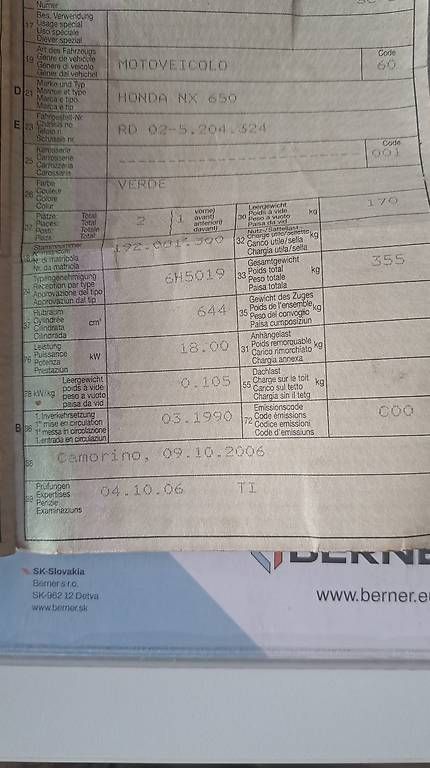 Numer
17 Bes. Verwendung
Usage spécial
Uso speciale
Diever spezial
19 Art des Fahrzeugs
Genre de véhicule
Genere di veicolo
Gener dal vehichel
MOTOVEICOLO
Code
60
D 21 Marke und Typ
Marque et type
Marca e tipo
Marca e tip
HONDA NX 650
E 23 Fahrgestell-Nr.
Châssis no
Telaio n.
Schassis nr.
RD 02-5.204.324
25 Karosserie
Carrosserie
Carrozzeria
Carossaria
Code
001
26 Farbe
Couleur
Colore
Colur
VERDE
27 Plätze: Total
Places: Total
Posti: Totale
Plazs: Total
2
1
vorne)
avant)
anteriori)
davant)
30 Leergewicht
Poids à vide
Peso a vuoto
Paisa da vid
kg
170
Stammnummer
N. di matricola
Nr. da matricla
192.001.300
32 Nutz-/Sattellast
Charge utile/sellette
Carico utile/sella
Chargia utila/sella
kg
24 Typengenehmigung
Réception par type
Approvazione del tipo
Approvaziun dal tip
6H5019
33 Gesamtgewicht
Poids total
Peso totale
Paisa totala
kg
355
37 Hubraum
Cylindrée
Cilindrata
Cilindrada
cm³
644
35 Gewicht des Zuges
Poids de l'ensemble
Peso del convoglio
Paisa cumposiziun
kg
76 Leistung
Puissance
Potenza
Prestaziun
kW
18.00
31 Anhängelast
Poids remorquable
Carico rimorchiato
Chargia annexa
kg
78 kW/kg
Leergewicht
poids à vide
peso a vuoto
paisa da vid
0.105
55 Dachlast
Charge sur le toit
Carico sul tetto
Chargia sin il tetg
kg
B 36 1. Inverkehrsetzung
1re mise en circulation
1a messa in circolazione
1. entrada en circulaziun
03.1990
72 Emissionscode
Code émissions
Codice emissioni
Code d'emissiuns
C00
38 Camorino, 09.10.2006
39 Prüfungen
Expertises
Perizie
Examinaziuns
04.10.06 TI
SK-Slovakia
Berner s.r.o.
SK-962 12 Detva
www.berner.sk
BERNE
www.berner.eu